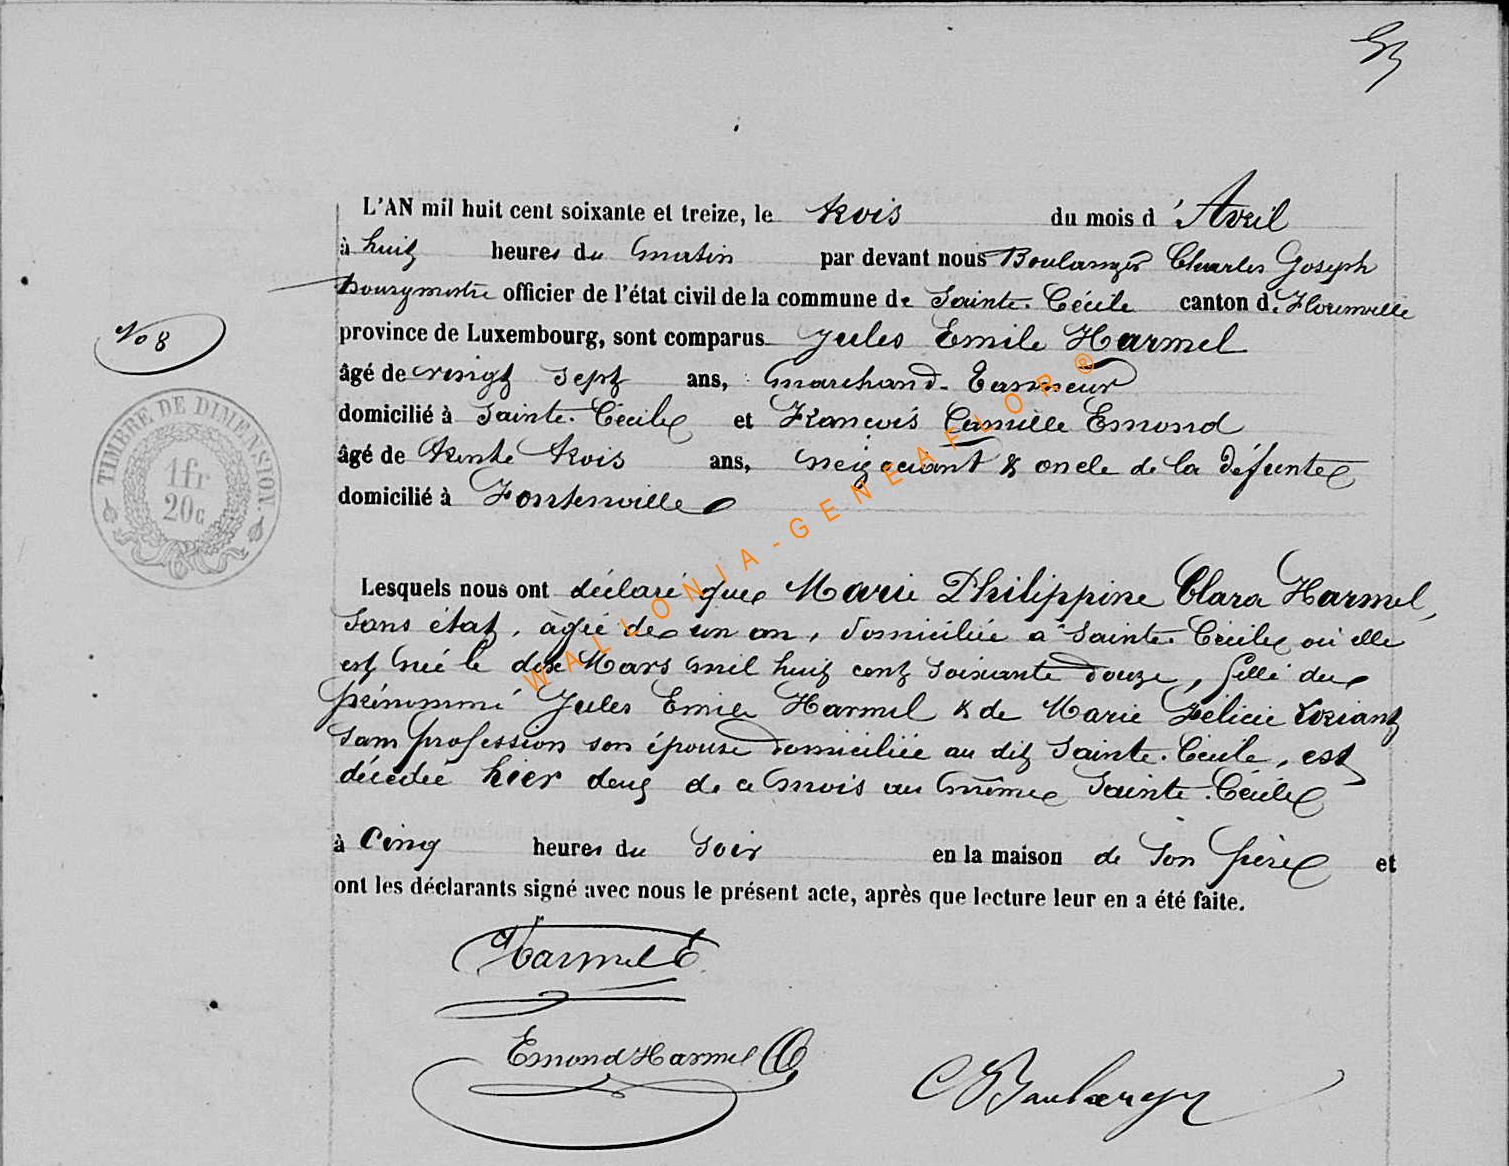 L'AN mil huit cent soixante et treize, le trois du mois d'Avril
à huit heures du matin par devant nous Boulanger Charles Joseph
Bourgmestre officier de l'état civil de la commune de Sainte-Cécile canton de Florenville
province de Luxembourg, sont comparus Jules Emile Harmel
No 8
âgé de vingt sept ans, marchand-tanneur
domicilié à Sainte-Cécile et François Camille Emond
âgé de trente trois ans, négociant & oncle de la défunte
domicilié à Fontenoille
TIMBRE DE DIMENSION.
1fr
20c
WALLONIA-GENEAFLOR ®
Lesquels nous ont déclaré que Marie Philippine Clara Harmel,
sans état, âgée de un an, domiciliée à Sainte-Cécile où elle
est née le dix Mars mil huit cent soixante douze, fille du
prénommé Jules Emile Harmel & de Marie Félicie
sans profession son épouse domiciliée au dit Sainte-Cécile, est
décédée hier deux de ce mois au même Sainte-Cécile
à cinq heures du soir en la maison de son père et
ont les déclarants signé avec nous le présent acte, après que lecture leur en a été faite.
Harmel E
Emond Harmel C
C Boulanger